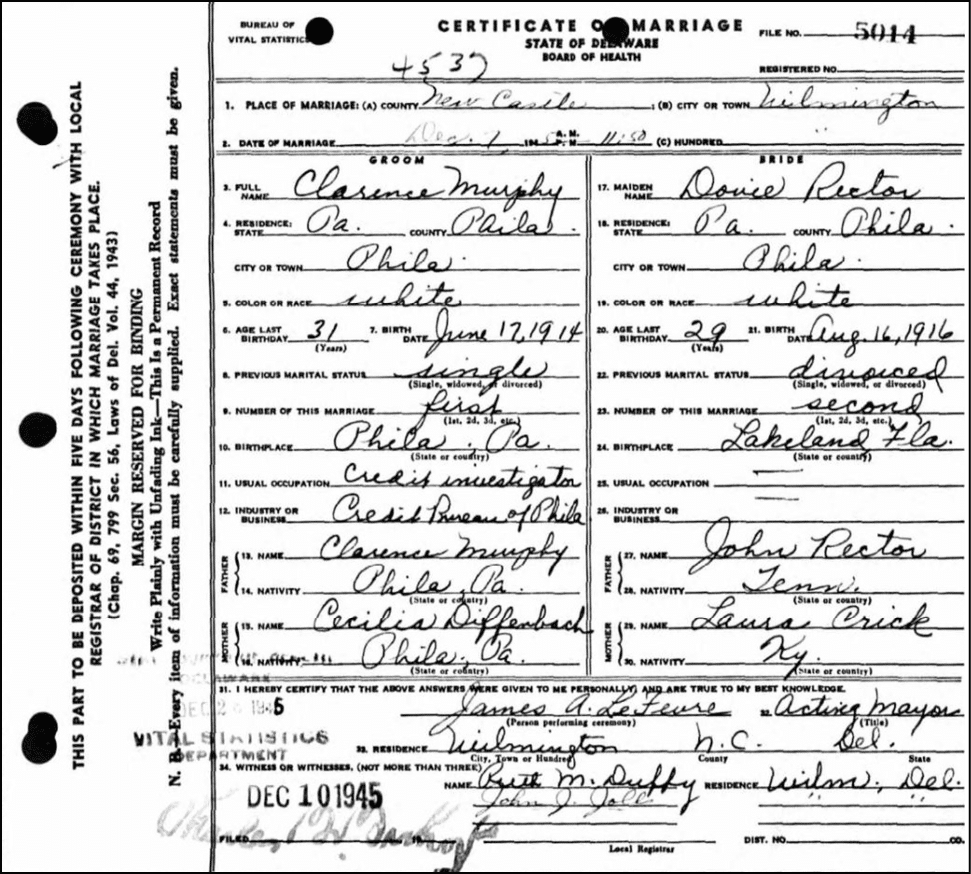 BUREAU OF
VITAL STATISTICS
CERTIFICATE OF MARRIAGE
STATE OF DELAWARE
BOARD OF HEALTH
FILE NO. 5014
REGISTERED NO.
4537
1. PLACE OF MARRIAGE: (A) COUNTY New Castle ; (B) CITY OR TOWN Wilmington
2. DATE OF MARRIAGE Dec. 7, 1945 A.M. P.M. 11:50 (C) HUNDRED
GROOM
3. FULL NAME Clarence Murphy
4. RESIDENCE: STATE Pa. COUNTY Phila.
CITY OR TOWN Phila.
5. COLOR OR RACE white
6. AGE LAST BIRTHDAY 31 (Years) 7. BIRTH DATE June 17, 1914
8. PREVIOUS MARITAL STATUS single
(Single, widowed, or divorced)
9. NUMBER OF THIS MARRIAGE first
(1st, 2d, 3d, etc.)
10. BIRTHPLACE Phila. Pa.
(State or country)
11. USUAL OCCUPATION Credit investigator
12. INDUSTRY OR BUSINESS Credit Bureau of Phila
FATHER
13. NAME Clarence Murphy
14. NATIVITY Phila, Pa.
(State or country)
MOTHER
15. NAME Cecilia Diffenbach
16. NATIVITY Phila, Pa.
(State or country)
BRIDE
17. MAIDEN NAME Dovie Rector
18. RESIDENCE: STATE Pa. COUNTY Phila.
CITY OR TOWN Phila.
19. COLOR OR RACE white
20. AGE LAST BIRTHDAY 29 (Years) 21. BIRTH DATE Aug. 16, 1916
22. PREVIOUS MARITAL STATUS divorced
(Single, widowed, or divorced)
23. NUMBER OF THIS MARRIAGE second
(1st, 2d, 3d, etc.)
24. BIRTHPLACE Lakeland Fla.
(State or country)
25. USUAL OCCUPATION —
26. INDUSTRY OR BUSINESS —
FATHER
27. NAME John Rector
28. NATIVITY Tenn.
(State or country)
MOTHER
29. NAME Laura Crick
30. NATIVITY Ky.
(State or country)
31. I HEREBY CERTIFY THAT THE ABOVE ANSWERS WERE GIVEN TO ME PERSONALLY, AND ARE TRUE TO MY BEST KNOWLEDGE.
James A. LeFevre 32. Acting Mayor
(Person performing ceremony) (Title)
33. RESIDENCE Wilmington N.C. Del.
City, Town or Hundred County State
34. WITNESS OR WITNESSES, (NOT MORE THAN THREE)
NAME M. Duffy RESIDENCE Wilm, Del.
John J. " "
DEC 10 1945
FILED 19
Local Registrar
DIST. NO. CO.
DELAWARE
DEC 1945
VITAL STATISTICS
DEPARTMENT
THIS PART TO BE DEPOSITED WITHIN FIVE DAYS FOLLOWING CEREMONY WITH LOCAL
REGISTRAR OF DISTRICT IN WHICH MARRIAGE TAKES PLACE.
(Chap. 69, 799 Sec. 56, Laws of Del. Vol. 44, 1943)
MARGIN RESERVED FOR BINDING
Write Plainly with Unfading Ink—This Is a Permanent Record
N. B. Every item of information must be carefully supplied. Exact statements must be given.